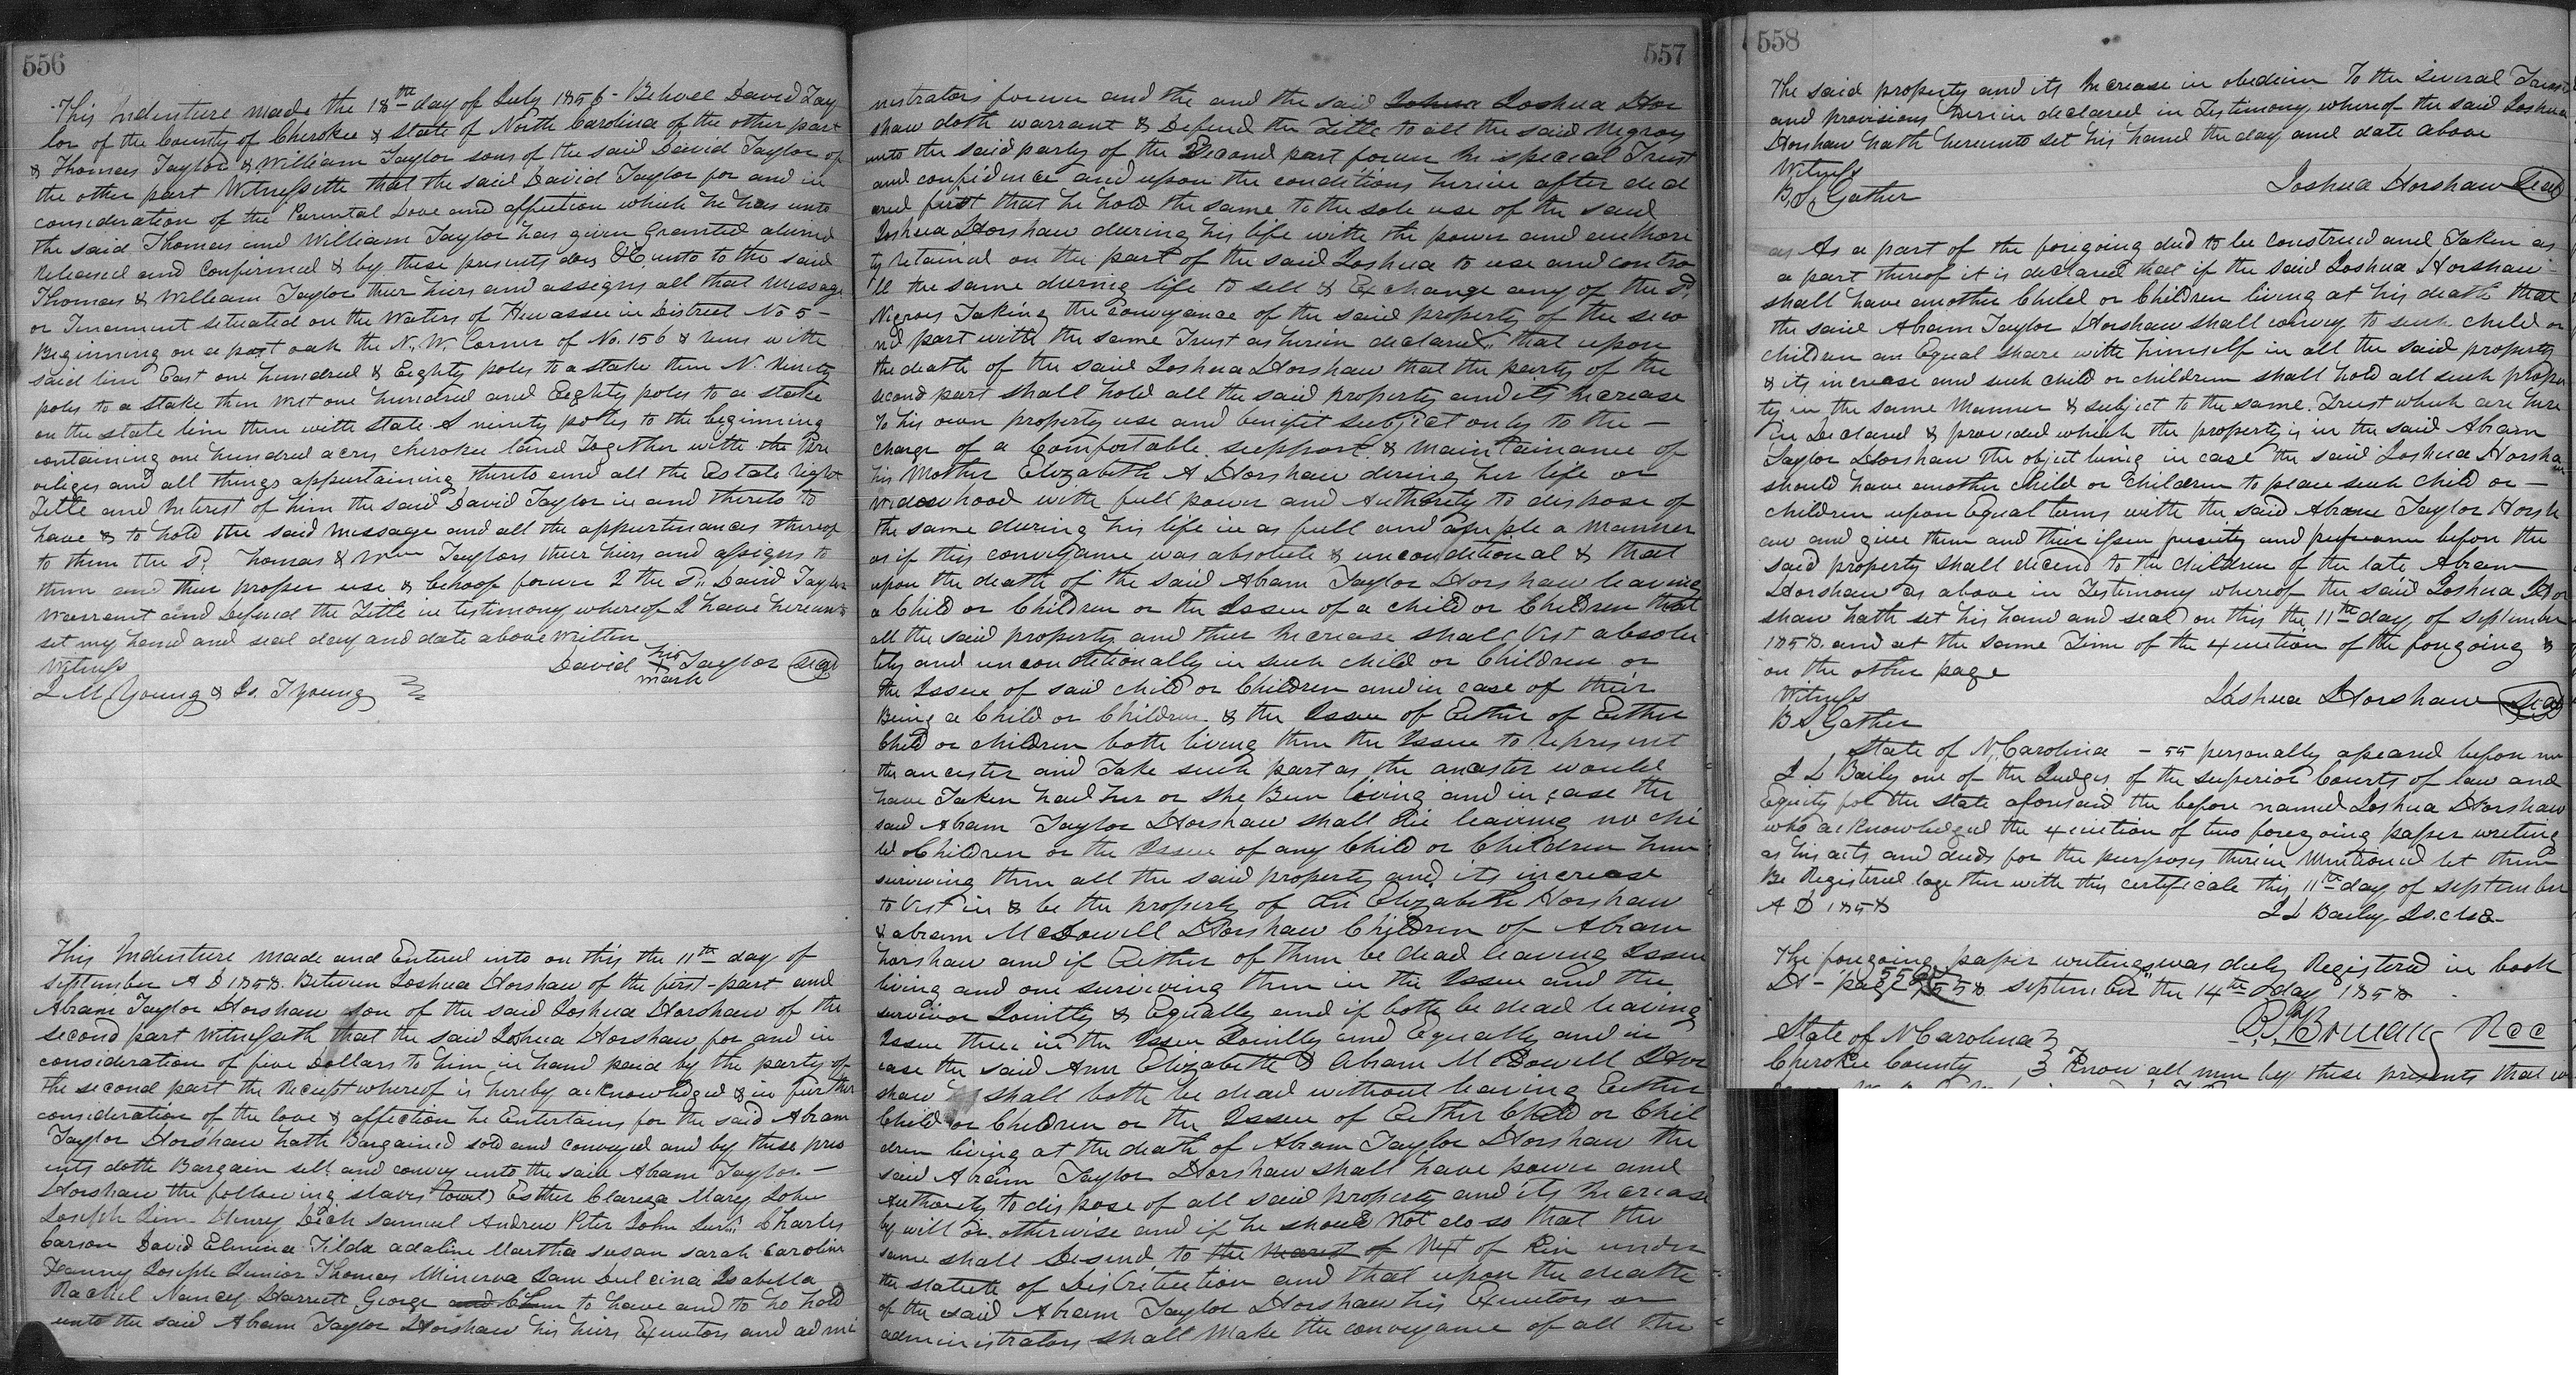 556
This Indenture made the 18th day of July 1856 - Between David Tay
lor of the County of Cherokee & State of North Carolina of the other part
& Thomas Taylor & William Taylor sons of the said David Taylor of
the other part Witnesseth that the said David Taylor for and in
consideration of the Parental Love and affection which he has unto
the said Thomas and William Taylor has given Granted aliened
Released and Confirmed & by these presents does &C unto to the said
Thomas & William Taylor their hiers and assigns all that Message
or Tenement situated on the Waters of Hiwassee in District No 5 -
Beginning on a post oak the N. W. Corner of No. 156 & runs with
said line East one hundred & Eighty poles to a stake then N. Ninety
poles to a stake then West one hundred and Eighty poles to a stake
on the state line then with state S ninety poles to the beginning
containing one hundred acres cherokee land Together with the Pre
veliges and all things appertaining thereto and all the Estate right
Title and Interest of him the said David Taylor in and thereto to
have & to hold the said Message and all the appertinances thereof
to them the Sd. Thomas & Wm Taylors their hiers and assigns to
them and their proper use & behoof forever I the Sd. David Taylor
Warrant and Defend the Title in testimony whereof I have hereunto
set my hand and seal day and date above Written
Witness David his X mark Taylor (Seal)
J M Young & Js. T Young
This Indenture made and Entered into on this the 11th day of
september A D 1858. Between Joshua Horshaw of the first-part and
Abram Taylor Horshaw son of the said Joshua Horshaw of the
second part Witnesseth that the said Joshua Horshaw for and in
consideration of five Dollars to him in hand paid by the party of
the second part the Reciept whereof is hereby acknowledged & in further
consideration of the love & affection he Entertains for the said Abram
Taylor Horshaw hath Bargained sold and conveyed and by these pres
ents doth Bargain sell and convey unto the said Abram Taylor -
Horshaw the following slaves (towit) Esther Clarisa Mary John
Joseph Jim Henry Dick Samuel Andrew Peter John Charles
Carson David Elmina Tilda adaline Martha susan sarah Caroline
Fanny Joseph Junior Thomas Minerva Sam Dulcina Isabella
Rachel Nancy Harriett George and to have and to ho hold
unto the said Abram Taylor Horshaw his hiers Executors and admi
557
nistrators forever and the and the said Joshua Joshua Hor
shaw doth warrant & Defend the Title to all the said Negroes
unto the said party of the Second part forever In special Trust
and confidence and upon the conditions herein after decl
ared first that he hold the same to the sole use of the said
Joshua Horshaw during his life with the power and authori
ty retained on the part of the said Joshua to use and contro
ll the same during life to sell & Exchange any of the Sd.
Negroes Taking the Conveyance of the said property of the seco
nd part with the same Trust as herein declared, that upon
the death of the said Joshua Horshaw that the party of the
second part shall hold all the said property and its Increase
To his own property use and benifit subject only to the -
charge of a Comfortable support & maintainance of
his Mother Elizabeth A Horshaw during her life or
widowhood with full power and Authority to dispose of
the same during his life in as full and ample a manner
as if this conveyance was absolute & unconditional & that
upon the death of the said Abram Taylor Horshaw leaving
a Child or Children or the Issue of a child or Children that
all the said property and their Increase shall Vest absolu
tely and unconditionally in such child or Children or
the Issue of said child or Children and in case of their
Being a Child or Children & the Issue of Either of Either
Child or children both living then the Issue to represent
the ancester and Take such part as the ancester would
have Taken had her or she Been living and in case the
said Abram Taylor Horshaw shall die leaving no chi
ld Children or the Issue of any Child or Children him
surviving then all the said property and its increase
to Vest in & be the property of Ann Elizabeth Horshaw
& abram McDowell Horshaw Children of Abram
horshaw and if Either of them be dead leaving Issue
living and one surviving then in the Issue and the
survivor Jointly & Equally and if both be dead leaving
Issue then in the Issue Jointly and Equally and in
case the said Ann Elizabeth & Abram McDowell Hor
shaw shall both be dead without leaving Either
Child or Children or the Issue of Either Child or Chil
dren living at the death of Abram Taylor Horshaw the
said Abram Taylor Horshaw shall have power and
Authority to dispose of all said property and its Increase
by will or otherwise and if he should Not do so that the
same shall Desend to the nearest of Next of Kin under
the statute of Distribution and that upon the death
of the said Abram Taylor Horshaw his Executors or
administrators shall Make the conveyance of all the
558
The said property and its Increase in obedience To the several Trusts
and provisions herein declared in Testimony whereof the said Joshua
Horshaw hath hereunto set his hand the day and date above
Witness
B. S. Gather Joshua Horshaw (Seal)
as As a part of the foregoing deed to be construed and Taken as
a part thereof it is declared that if the said Joshua Horshaw
shall have another Child or Children living at his death that
the said Abram Taylor Horshaw shall convey to such child or
children an Equal share with himself in all the said property
& its increase and such child or children shall hold all such proper
ty in the same Manner & subject to the same Trust which are here
in Declared & provided which the property is in the said Abram
Taylor Horshaw the object being in case the said Joshua Horshaw
should have another child or children to place such child or -
children upon Equal terms with the said Abram Taylor Horsh
aw and give them and their issue priority and before the
said property shall decend to the children of the late Abram
Horshaw as above in Testimony whereof the said Joshua Hor
shaw hath set his hand and seal on this the 11th day of september
1858. and at the same Time of the execution of the foregoing &
on the other page
Witness Joshua Horshaw (Seal)
B S Gather
State of N. Carolina - SS personally apeared before me
J L Baily one of the Judges of the superior Courts of law and
Equity for the state aforesaid the before named Joshua Horshaw
who acknowledged the execution of two foregoing paper writing
as his acts and deeds for the purposes therein Mentioned let them
Be Registered together with this certificate this 11th day of september
A D 1858 J L Bailey
The foregoing paper writings was duly Registered in book
H - page 556 & 558. september the 14th day 1858 -
State of N Carolina
Cherokee County Know all men by these presents that